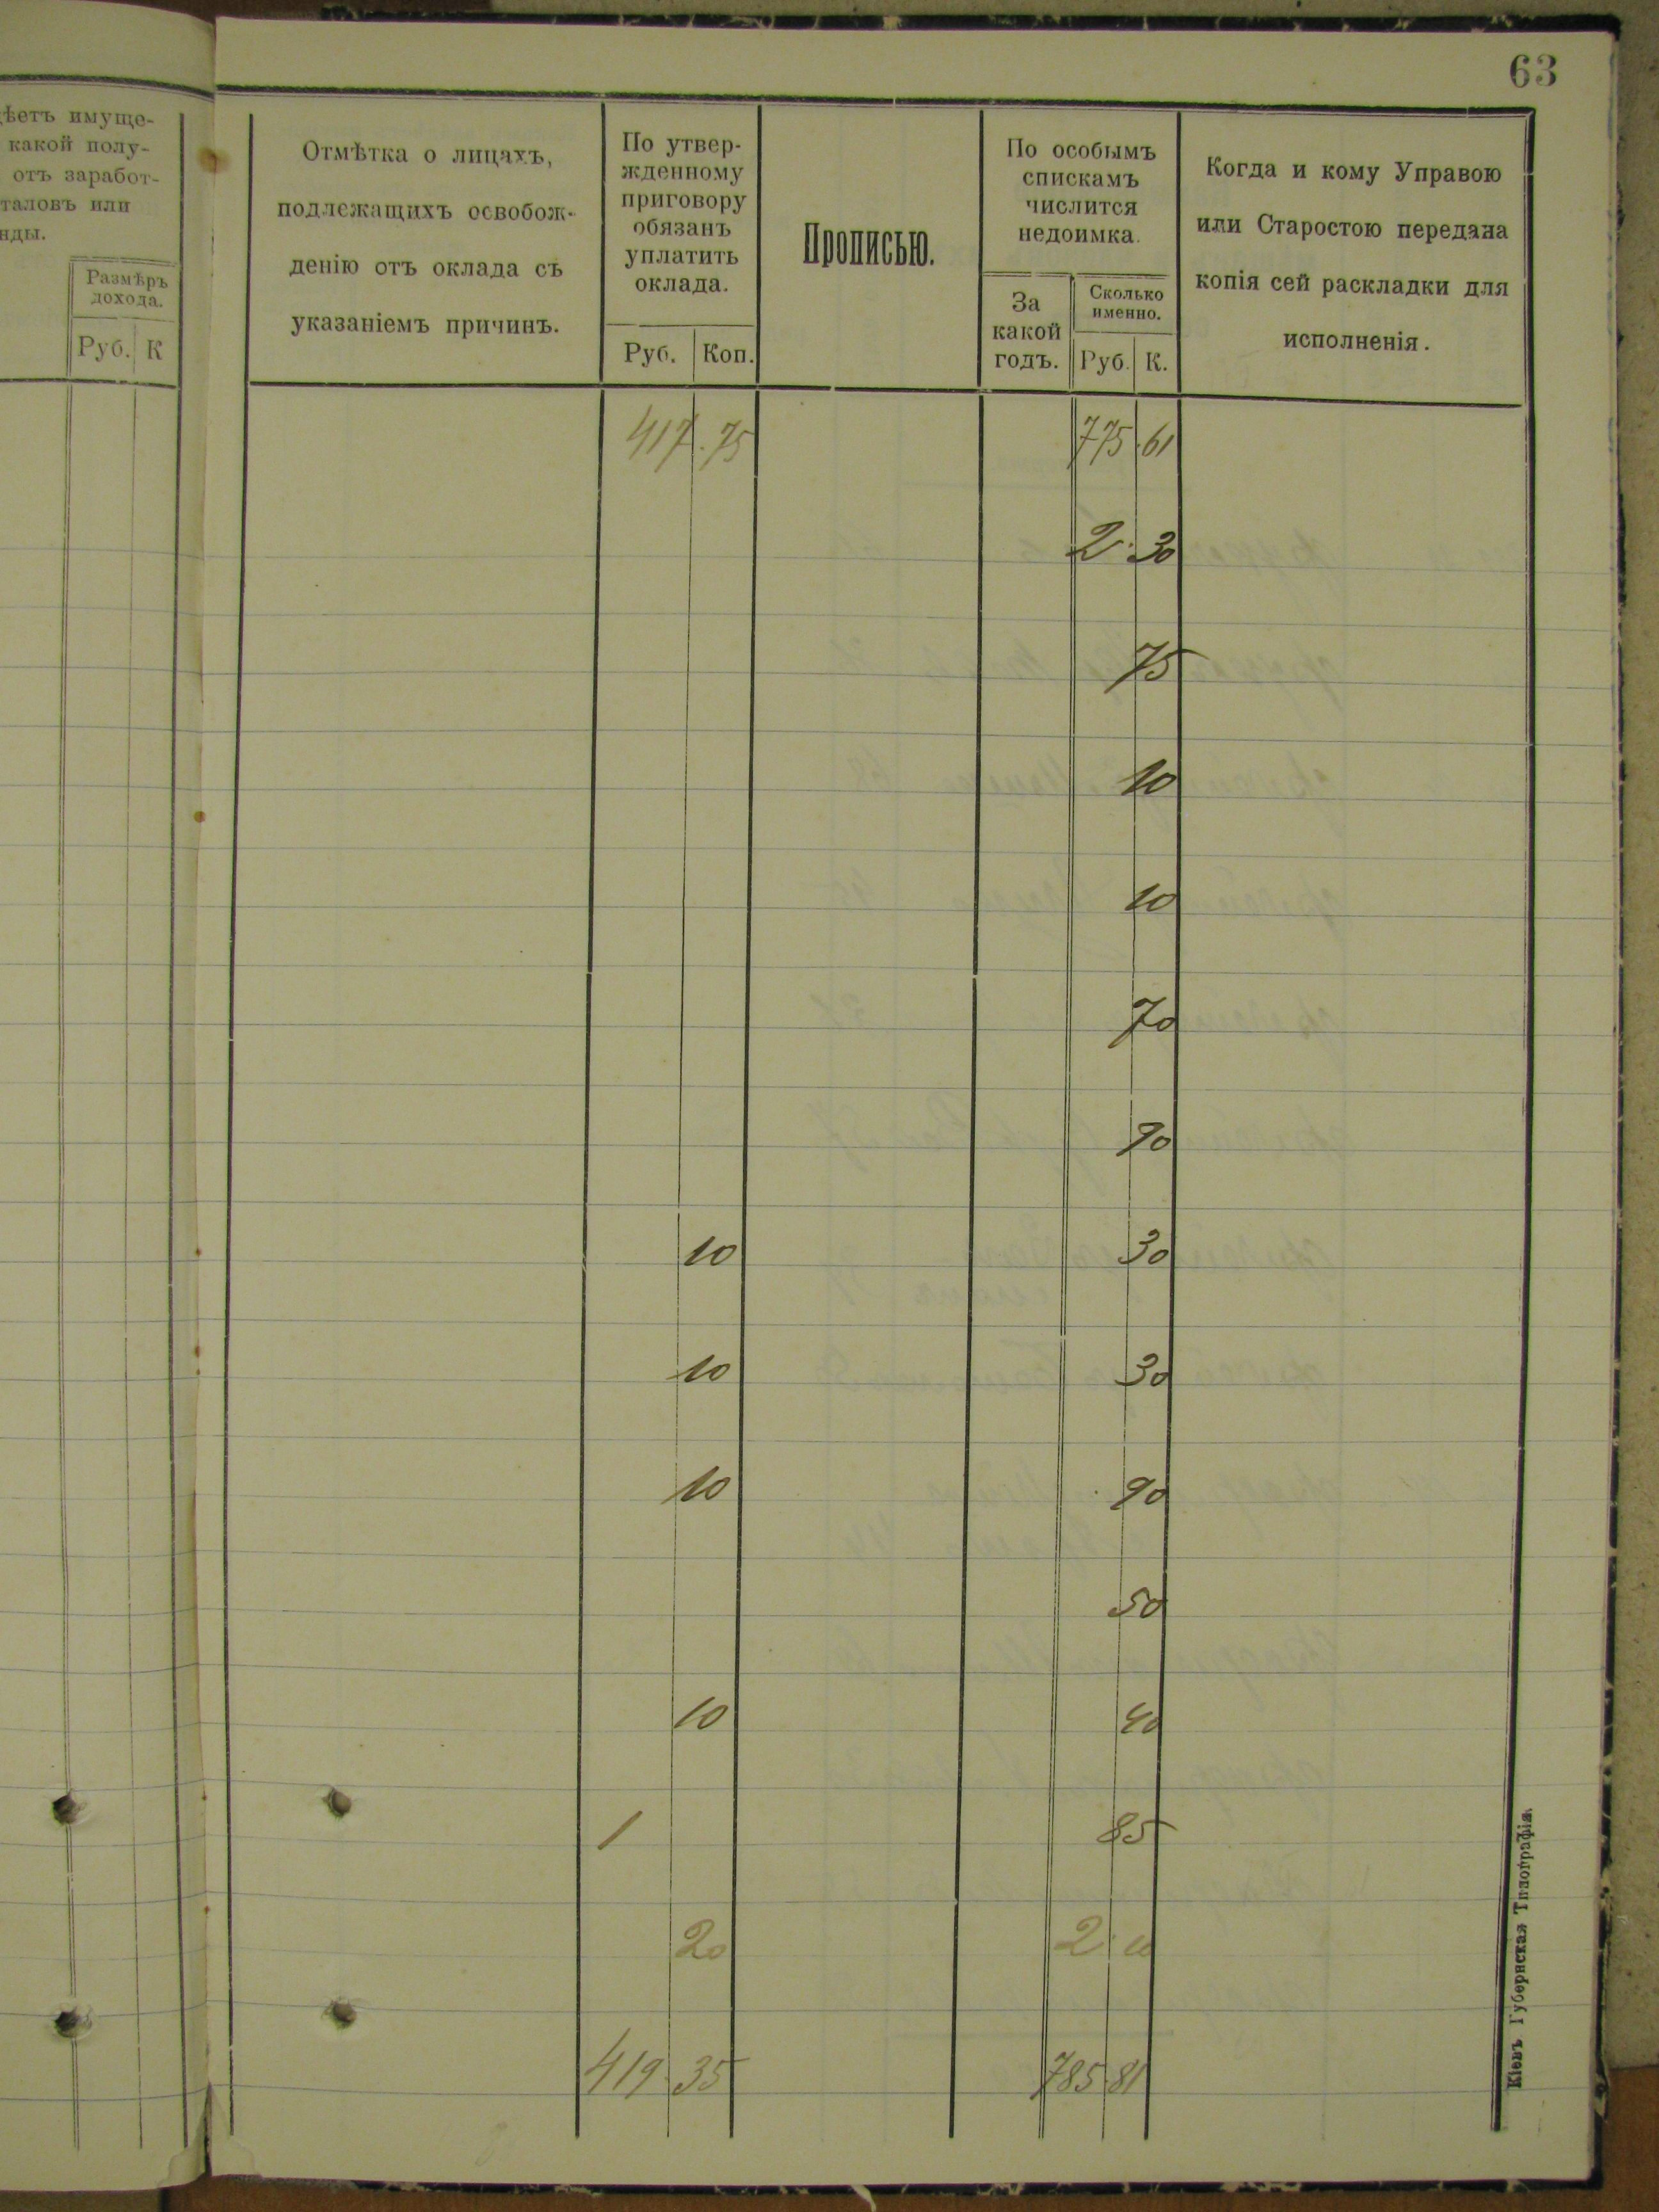 63
ѣетъ имуще-
какой полу-
отъ заработ-
таловъ или
нды.
Размѣръ
дохода.
Руб. К
Отмѣтка о лицахъ,
подлежащихъ освобож-
денію отъ оклада съ
указаніемъ причинъ.
По утвер-
жденному
приговору
обязанъ
уплатить
оклада.
Руб. Коп.
Прописью.
По особымъ
спискамъ
числится
недоимка.
За
какой
годъ.
Сколько
именно.
Руб. К.
Когда и кому Управою
или Старостою передана
копія сей раскладки для
исполненія.
417.75 775.61
2.30
75
10
10
70
90
10 30
10 30
10 90
50
10 40
1 85
20 2.10
419.35 785.81
Кіевъ Губернская Типографія.